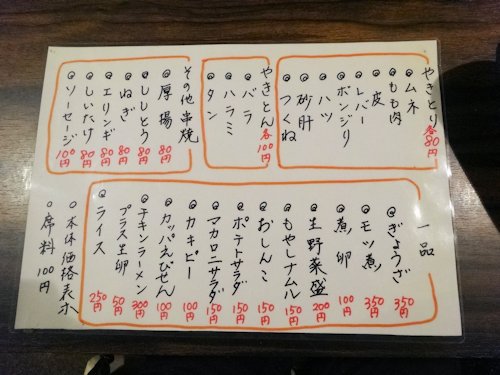 やきとり各80円
◎ムネ
◎もも肉
◎皮
◎レバー
◎ボンジリ
◎ハツ
◎砂肝
◎つくね
やきとん各100円
◎バラ
◎ハラミ
◎タン
その他串焼
◎厚揚 80円
◎ししとう 80円
◎ねぎ 80円
◎エリンギ 80円
◎しいたけ 80円
◎ソーセージ 100円
一品
◎ぎょうざ 350円
◎モツ煮 350円
◎煮卵 100円
◎生野菜盛 200円
◎もやしナムル 150円
◎おしんこ 150円
◎ポテトサラダ 150円
◎マカロニサラダ 150円
◎カキピー 100円
◎カッパえびせん 100円
◎チキンラーメン 300円
プラス生卵 50円
◎ライス 250円
○本体価格表示
○席料100円